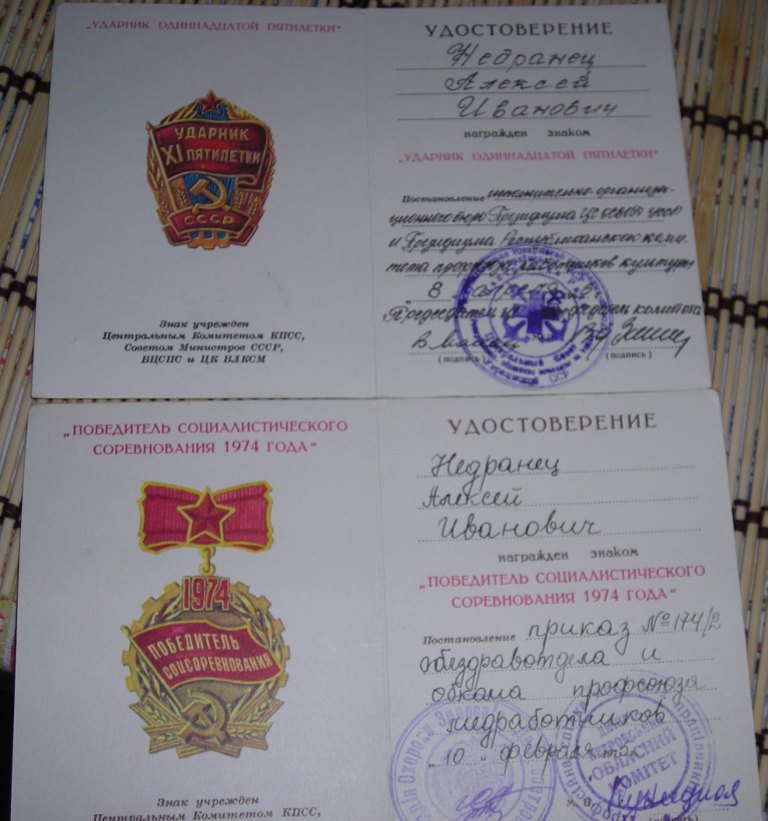 „УДАРНИК ОДИННАДЦАТОЙ ПЯТИЛЕТКИ"
УДАРНИК
XI ПЯТИЛЕТКИ
СССР
Знак учрежден
Центральным Комитетом КПСС,
Советом Министров СССР,
ВЦСПС и ЦК ВЛКСМ
УДОСТОВЕРЕНИЕ
Недранец
Алексей
Иванович
награжден знаком
„УДАРНИК ОДИННАДЦАТОЙ ПЯТИЛЕТКИ"
Постановление исполнительно-организа-
ционного бюро Президиума ЦС
и Президиума Республиканского коми-
тета профсоюза работников культуры
„ 8 "
Председатель
(подпись) (подпись)
„ПОБЕДИТЕЛЬ СОЦИАЛИСТИЧЕСКОГО
СОРЕВНОВАНИЯ 1974 ГОДА"
1974
ПОБЕДИТЕЛЬ
СОЦСОРЕВНОВАНИЯ
Знак учрежден
Центральным Комитетом КПСС,
УДОСТОВЕРЕНИЕ
Недранец
Алексей
Иванович
награжден знаком
„ПОБЕДИТЕЛЬ СОЦИАЛИСТИЧЕСКОГО
СОРЕВНОВАНИЯ 1974 ГОДА"
Постановление приказ № 174/2
облздравотдела и
обкома профсоюза
медработников
„ 10 " февраля
ОБЛАСНИЙ
КОМІТЕТ